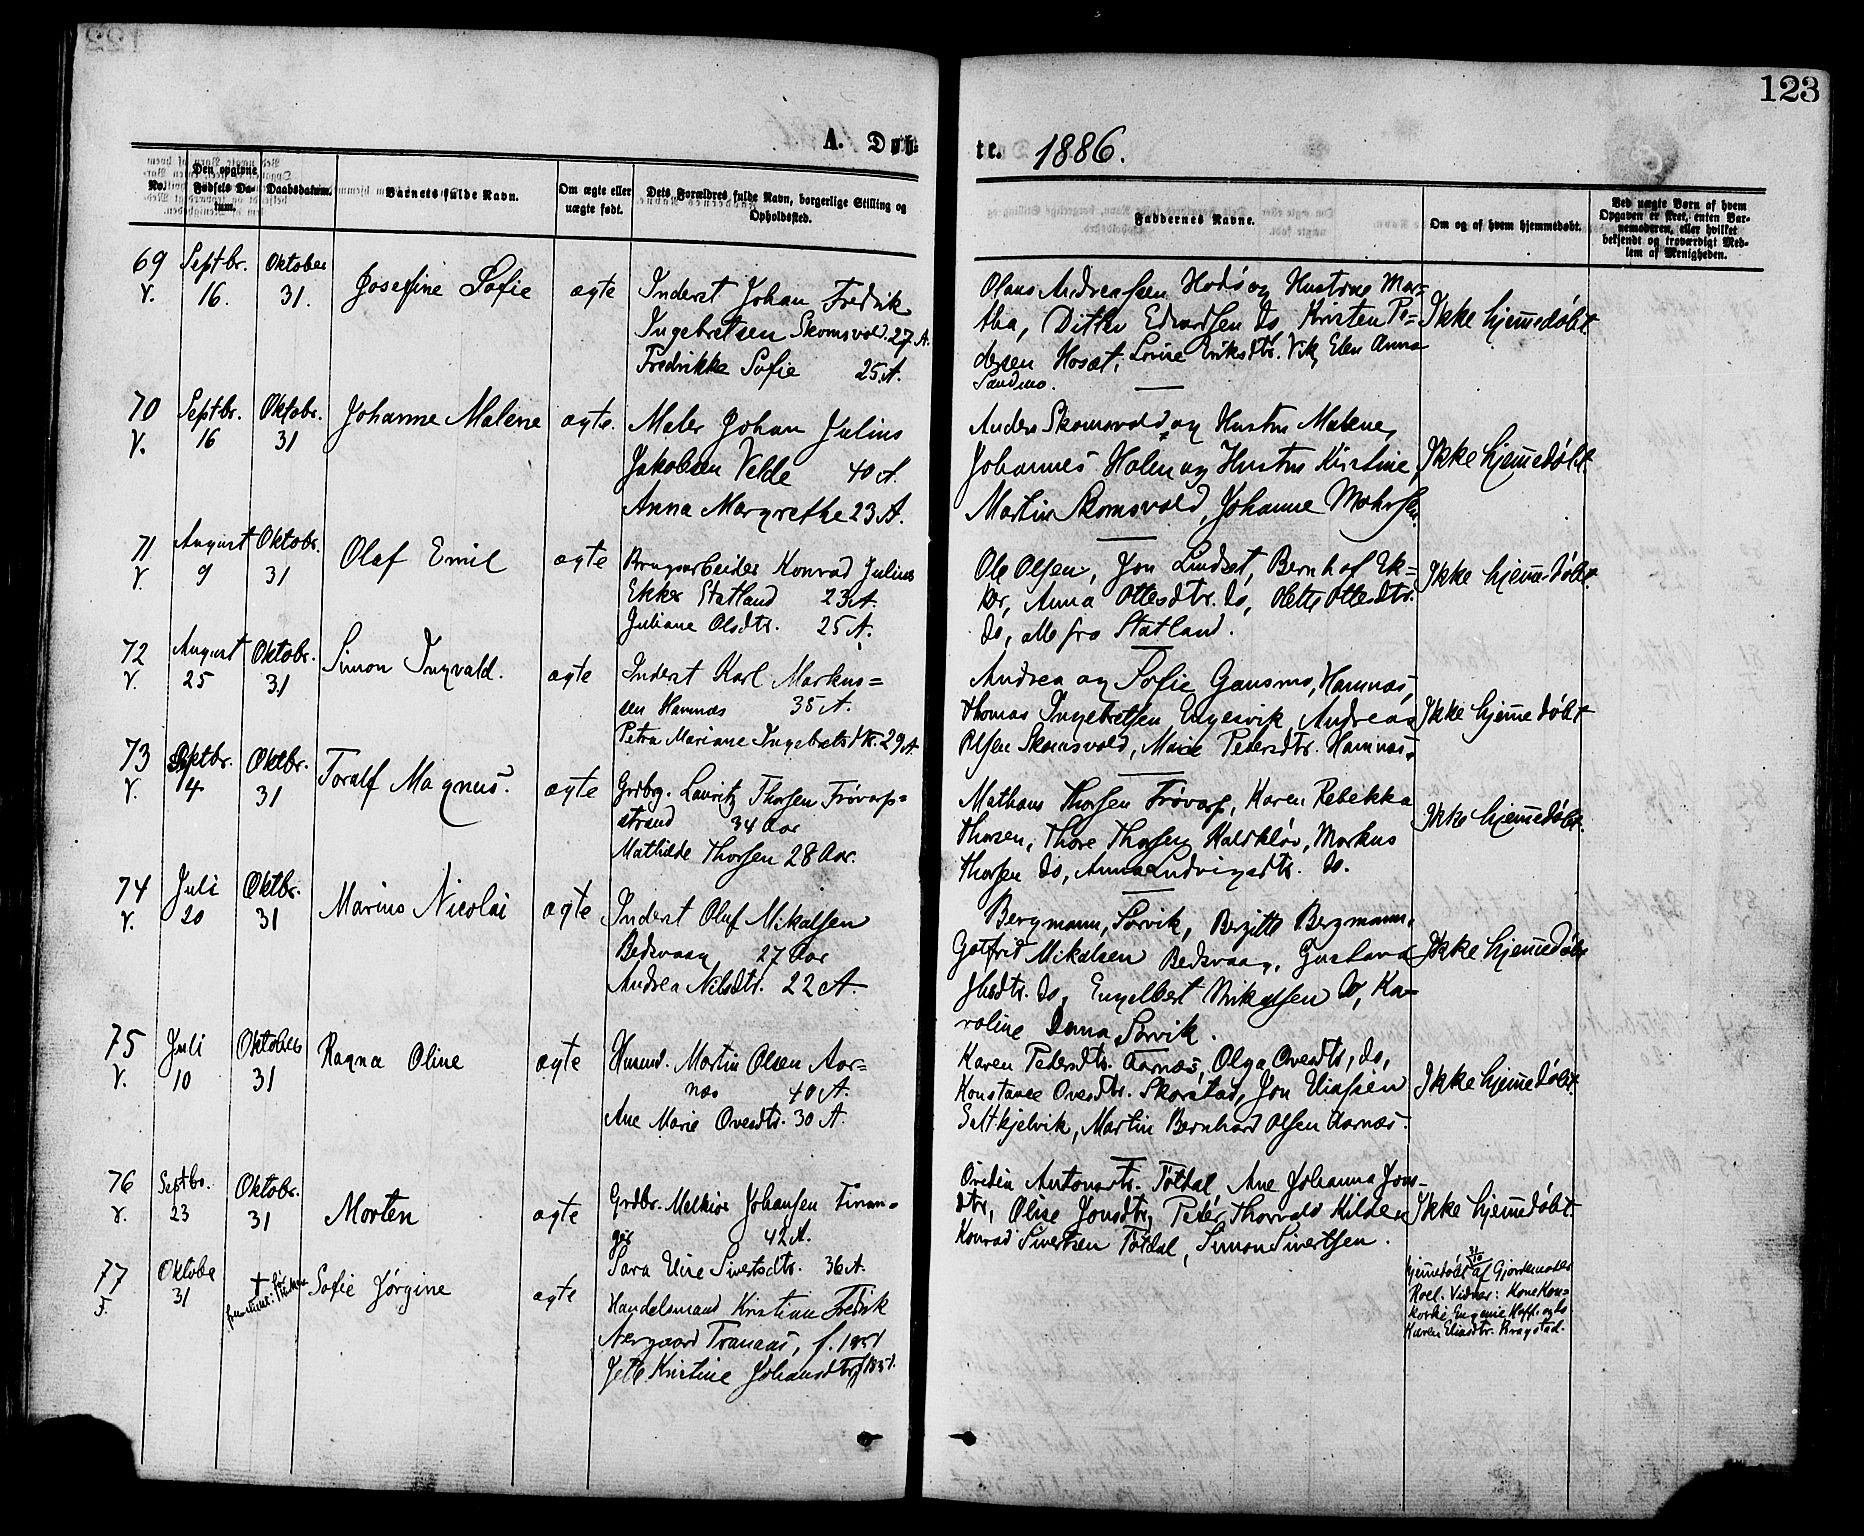 123
A. Døb-
te. 1886.
No.
Den opgivne Fødsels Datum.
Daabsdatum.
Barnets fulde Navn.
Om ægte eller uægte født.
Dets Forældres fulde Navn, borgerlige Stilling og Opholdssted.
Faddernes Navne.
Om og af hvem hjemmedøbt.
Ved uægte Børn af hvem Opgaven er sket, enten Barnemoderen, eller hvilket bekjendt og troværdigt Medlem af Menigheden.
69 Septbr. Oktober
V. 16. 31. Josefine Sofie ægte Inderst Johan Fredrik
Ingebretsen Skomsvold. 27 A.
Fredrikke Sofie 25 A.
Olaus Andreassen Hodø og Hustrue Mar=
tha, Edvardsen do, Kristen Pe=
dersen Hosæt, Eriksdtr. Vik, Elen Anna
Sandmo.
Ikke hjemmedøbt.
70 Septbr. Oktobr.
V. 16 31 Johanne Malene ægte. Maler Johan Julius
Jakobsen Velde 40 A.
Anna Margrethe 23 A.
Anders Skomsvold og Hustru Malene,
Johannes Holen og Hustru Kirstine,
Martin Skomsvold, Johanne
Ikke hjemmedøbt.
71 August Oktobr.
V. 9 31 Olaf Emil ægte Brugsarbeider Konrad Julius
Ekker Statland 23 A.
Juliane Olsdtr. 25 A.
Ole Olsen, Jon Lindset, Bernhof Ek=
ker, Anna Ottesdtr. do, Olette Ottesdtr.
do, alle fra Statland.
Ikke hjemmedøbt.
72 August Oktobr.
V. 25 31 Simon Ingvald. ægte Inderst Karl Markus=
sen Hamnæs 35 A.
Petra Mariane Ingebretsdtr. 29 A.
Andrea og Sofie Gansmo, Hamnæs,
Thomas Ingebretsen Engesvik, Andreas
Olsen Skomsvold, Marie Petersdtr. Hamnæs.
Ikke hjemmedøbt
73 Septbr. Oktbr.
V. 14 31 Toralf Magnus. ægte Grdbrg. Lauritz Thorsen Frøvarp=
strand 34 Aar
Mathilde Thorsen 28 Aar.
Mathæus Thorsen Frøvarp, Karen Rebekka
Thorsen, Thore Thorsen Kaldkløv, Markus
Thorsen do, Anna Ludvigsdtr. do.
Ikke hjemmedøbt.
74 Juli Oktbr.
V. 20 31 Marius Nicolai ægte Inderst Oluf Mikalsen
Bedsvaag 27 Aar
Andrea Nilsdtr. 22 A.
Bergmann, Sørvik, Bergitte Bergmann,
Gotfrid Mikalsen Bedsvaag, Gustava
do, Engelbert Mikalsen do, Ka=
roline Dama Sørvik.
Ikke hjemmedøbt
75 Juli Oktober
V. 10 31 Ragna Oline ægte Husmd. Martin Olsen Aar=
næs 40 A.
Ane Marie Ovesdtr. 30 A.
Karen Petersdtr. Aarnæs, Olga Ovesdtr, do,
Konstance Ovesdtr. Skorstad, Jon Eliassen
Saltkjelvik, Martin Bernhard Olsen Aarnæs.
Ikke hjemmedøbt.
76 Septbr. Oktobr.
V. 23 31 Morten ægte Grdbr. Melkior Johansen Finan=
ger 42 A.
Sara Sivertsdtr. 36 A.
Antonsdtr. Totdal, Ane Johanna Jons=
dtr, Olise Jonsdtr, Peter Thorvald Kilden
Konrad Sivertsen Totdal, Simon Sivertsen.
Ikke hjemmedøbt.
77 Oktober
F. 31 † Sofie Jørgine ægte Handelsmand Kristian Fredrik
Aergaard Tranaas, f. 1851
Jette Kristine Johansdtr f 1851.
31/10
hjemmedøbt af Gjordemoder
Roel. Vidner: Kone
Eugenie Hoff og do
Karen Eliasdtr. Bragstad.